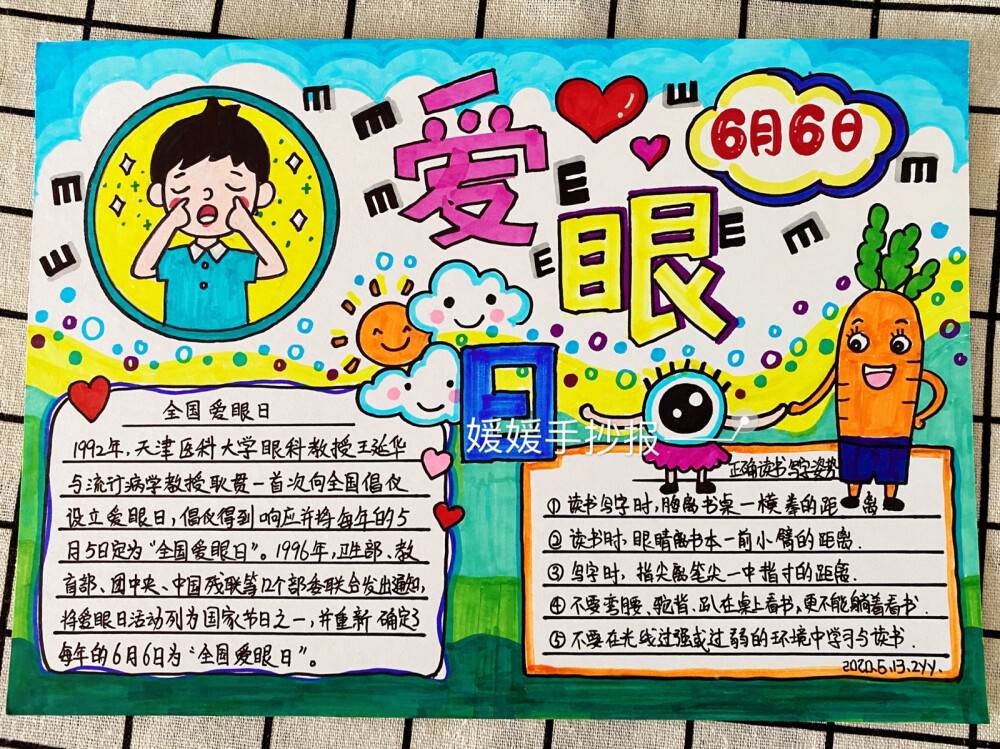 爱眼日
6月6日
全国爱眼日
1992年，天津医科大学眼科教授王延华
与流行病学教授耿贯一首次向全国倡仪
设立爱眼日，倡仪得到响应并将每年的5
月5日定为“全国爱眼日”。1996年，卫生部、教
育部、团中央、中国残联等12个部委联合发出通知，
将爱眼日活动列为国家节日之一，并重新确定了
每年的6月6日为“全国爱眼日”。
媛媛手抄报
正确读书写字姿势
①读书写字时，胸离书桌一横拳的距离
②读书时，眼睛离书本一前小臂的距离.
③写字时，指尖离笔尖一中指寸的距离.
④不要弯腰、驼背、趴在桌上看书，更不能躺着看书.
⑤不要在光线过强或过弱的环境中学习与读书.
2020.5.13.ZYY.